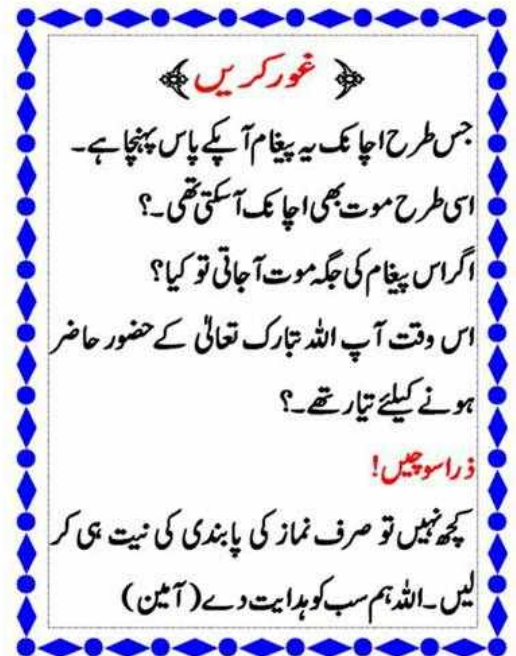 ﴿ غور کریں ﴾
جس طرح اچانک یہ پیغام آپکے پاس پہنچا ہے۔
اسی طرح موت بھی اچانک آسکتی تھی۔؟
اگر اس پیغام کی جگہ موت آجاتی تو کیا؟
اس وقت آپ اللہ تبارک تعالیٰ کے حضور حاضر
ہونے کیلئے تیار تھے۔؟
ذرا سوچیں!
کچھ نہیں تو صرف نماز کی پابندی کی نیت ہی کر
لیں۔اللہ ہم سب کو ہدایت دے (آمین)